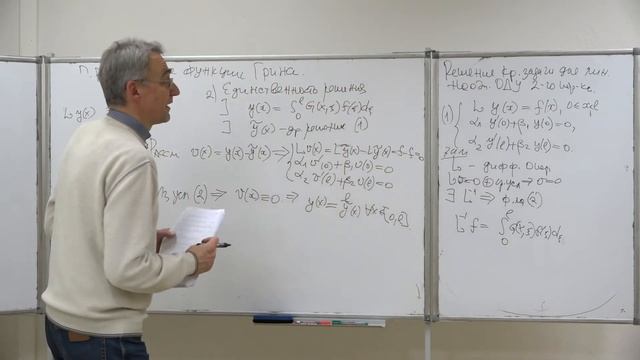 функции Грина.
2) Единственность решения
∃ y(x) = ∫₀ˡ G(x,ξ) f(ξ)dξ
∃ ỹ(x) - др. решение (1)
L y(x)
v(x) = y(x) - ỹ(x) ⇒ { L v(x) = L y - L ỹ = f - f = 0
α₁ v'(0) + β₁ v(0) = 0
α₂ v'(ℓ) + β₂ v(ℓ) = 0
Из усл (2) ⇒ v(x) ≡ 0 ⇒ y(x) = ỹ(x) ∀x∈[0,ℓ]
Решение кр. задачи для лин.
неодн. ОДУ 2-го пор-ка.
(1) { L y(x) = f(x), 0<x<ℓ
α₁ y'(0) + β₁ y(0) = 0,
α₂ y'(ℓ) + β₂ y(ℓ) = 0.
зам L - дифф. опер.
∃ L⁻¹ ⇒
L⁻¹ f = ∫₀ˡ G(x,ξ) f(ξ) dξ